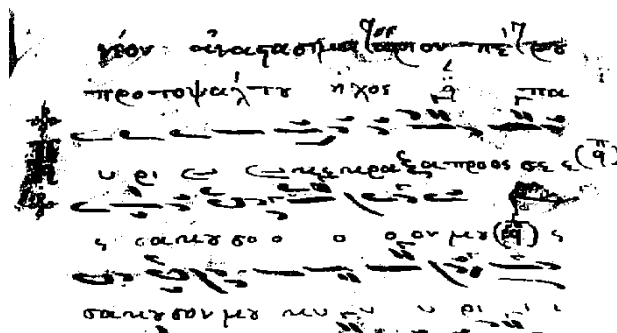 νέον ἀναστασηματάριον πέτρου
προτοψάλτου ἦχος πα
υ ρι ε ε κεκραξα προος σε ε
ε σακουσοο ο ο ον μου ε
σακουσον μου κυ υ υ ρι ι ι